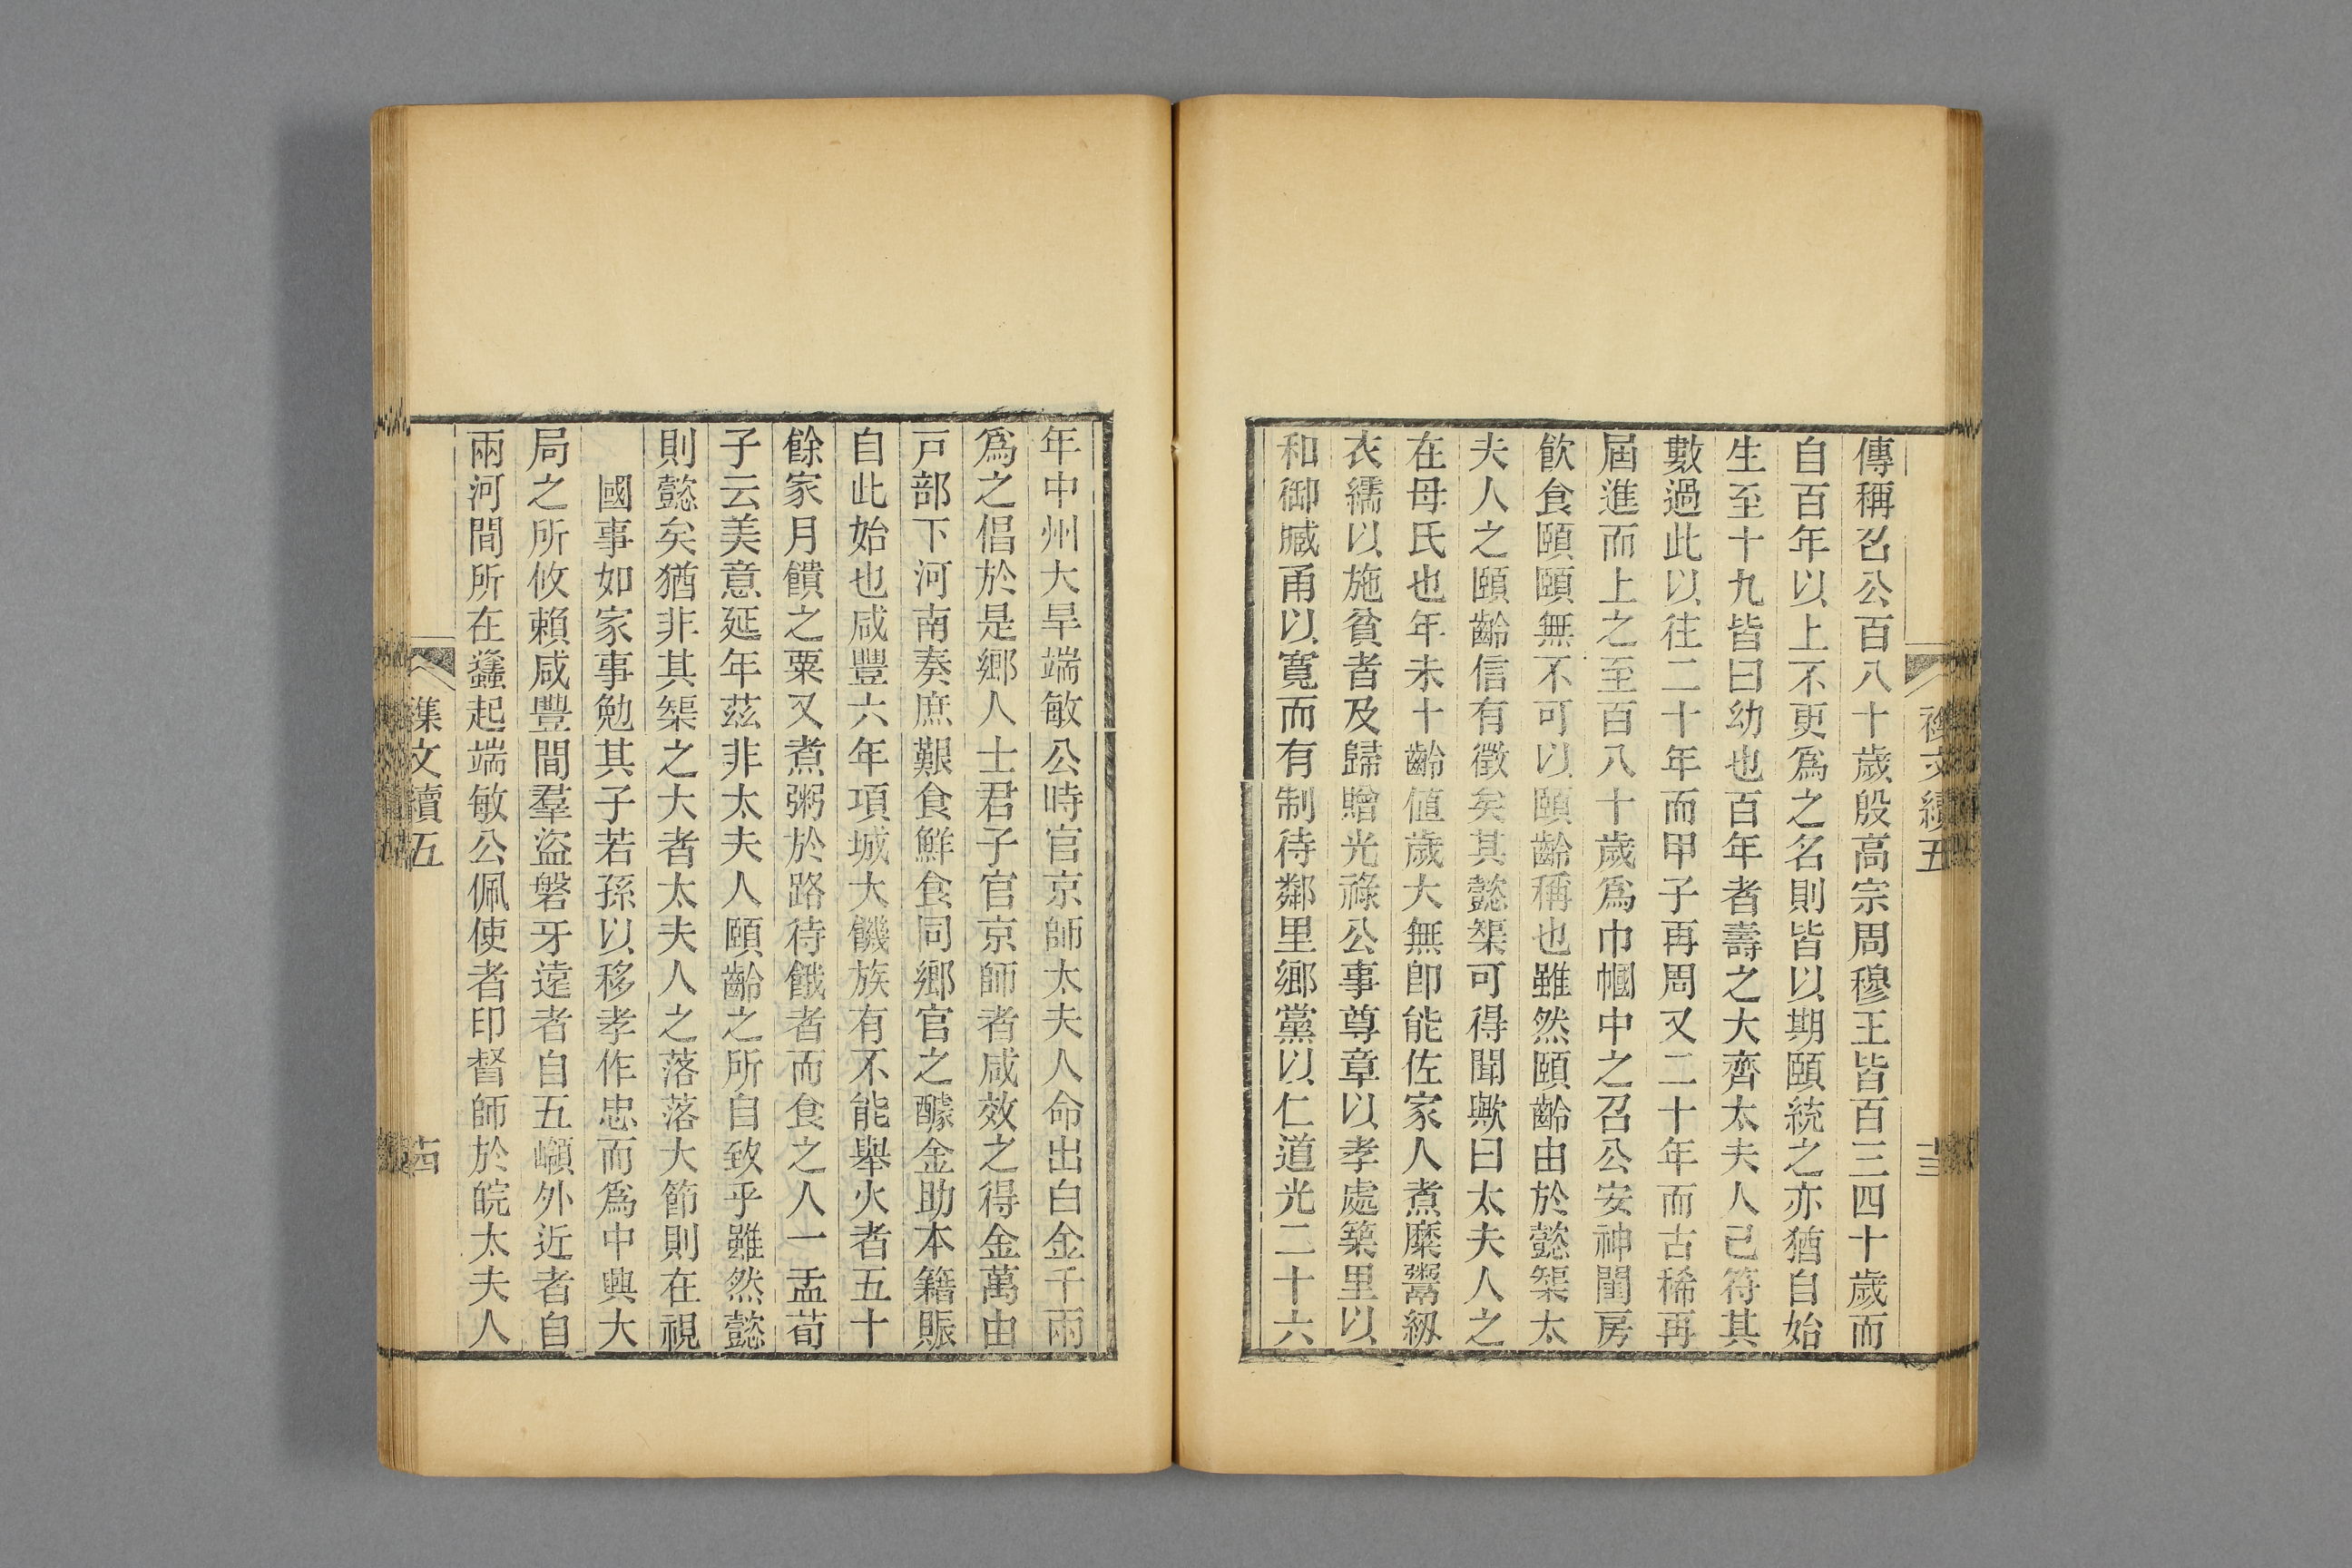 傳稱召公百八十歲殷高宗周穆王皆百三四十歲而
自百年以上不更爲之名則皆以期頤統之亦猶自始
生至十九皆曰幼也百年者壽之大齊太夫人已符其
數過此以往二十年而甲子再周又二十年而古稀再
屆進而上之至百八十歲爲巾幗中之召公安神閨房
飮食頤頤無不可以頤齡稱也雖然頤齡由於懿榘太
夫人之頤齡信有徵矣其懿榘可得聞歟曰太夫人之
在母氏也年未十齡値歲大無卽能佐家人煮糜鬻紉
衣繻以施貧者及歸贈光祿公事尊章以孝處築里以
和御臧甬以寬而有制待鄰里鄉黨以仁道光二十六
年中州大旱端敏公時官京師太夫人命出白金千兩
爲之倡於是鄉人士君子官京師者咸效之得金萬由
戸部下河南奏庶艱食鮮食同鄉官之醵金助本籍賑
自此始也咸豐六年項城大饑族有不能舉火者五十
餘家月饋之粟又煮粥於路待餓者而食之人一盂荀
子云美意延年茲非太夫人頤齡之所自致乎雖然懿
則懿矣猶非其榘之大者太夫人之落落大節則在視
國事如家事勉其子若孫以移孝作忠而爲中興大
局之所攸賴咸豐間羣盜磐牙遠者自五嶺外近者自
兩河間所在蠭起端敏公佩使者印督師於皖太夫人
文續五